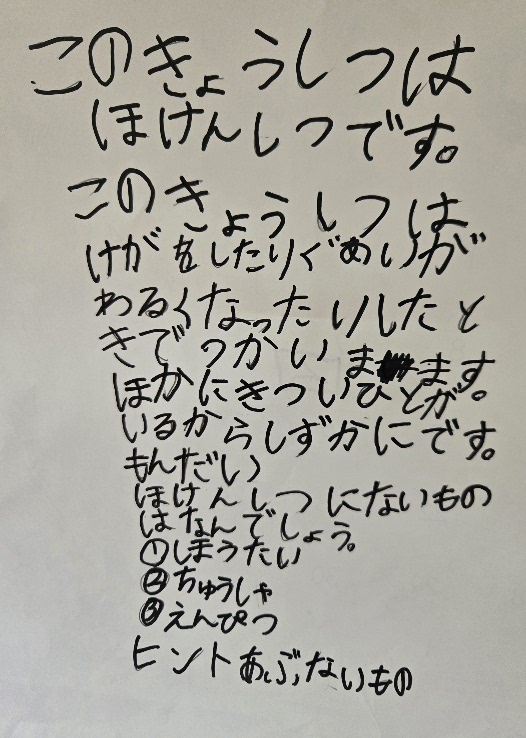 このきょうしつは
ほけんしつです。
このきょうしつは
けがをしたりぐあいが
わるくなったりしたと
きでつかいます。
ほかにきついひとが
いるからしずかにです。
もんだい
ほけんしつにないもの
はなんでしょう。
①しほうたい
②ちゅうしゃ
③えんぴつ
ヒントあぶないもの